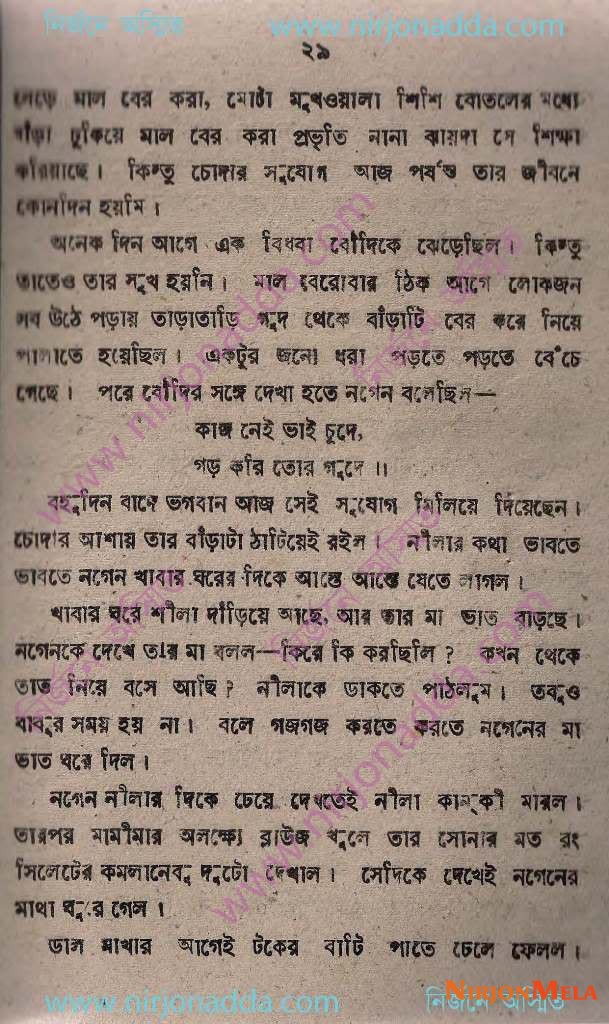 www.nirjonadda.com নির্জনে অস্মিত
২৯
নেড়ে মাল বের করা, মোটা মুখওয়ালা শিশি বোতলের মধ্যে
বাঁড়া ঢুকিয়ে মাল বের করা প্রভৃতি নানা কায়দা সে শিক্ষা
করিয়াছে। কিন্তু চোদার সুযোগ আজ পর্যন্ত তার জীবনে
কোনদিন হয়নি।
অনেক দিন আগে এক বিধবা বৌদিকে ঝেড়েছিল। কিন্তু
তাতেও তার সুখ হয়নি। মাল বেরোবার ঠিক আগে লোকজন
সব উঠে পড়ায় তাড়াতাড়ি গুদ থেকে বাঁড়াটি বের করে নিয়ে
পালাতে হয়েছিল। একটুর জন্যে ধরা পড়তে পড়তে বেঁচে
গেছে। পরে বৌদির সঙ্গে দেখা হতে নগেন বলেছিল—
কাজ নেই ভাই চুদে,
গড় করি তোর গুদে ॥
বহুদিন বাদে ভগবান আজ সেই সুযোগ মিলিয়ে দিয়েছেন।
চোদার আশায় তার বাঁড়াটা ঠাটিয়েই রইল। নীলার কথা ভাবতে
ভাবতে নগেন খাবার ঘরের দিকে আস্তে আস্তে যেতে লাগল।
খাবার ঘরে শীলা দাঁড়িয়ে আছে, আর তার মা ভাত বাড়ছে।
নগেনকে দেখে তার মা বলল—কিরে কি করছিলি? কখন থেকে
ভাত নিয়ে বসে আছি? নীলাকে ডাকতে পাঠলুম। তবুও
বাবুর সময় হয় না। বলে গজগজ করতে করতে নগেনের মা
ভাত ধরে দিল।
নগেন নীলার দিকে চেয়ে দেখতেই নীলা কানকী মারল।
তারপর মামীমার অলক্ষ্যে ব্লাউজ খুলে তার সোনার মত রং
সিলেটের কমলানেবু দুটো দেখাল। সেদিকে দেখেই নগেনের
মাথা ঘুরে গেল।
ডাল মাখার আগেই টকের বাটি পাতে ঢেলে ফেলল।
NIRJONMELA
www.nirjonadda.com নির্জনে অস্মিত